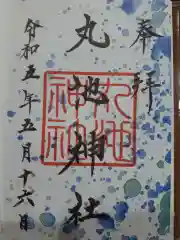 奉拝
丸池神社
令和五年五月十六日